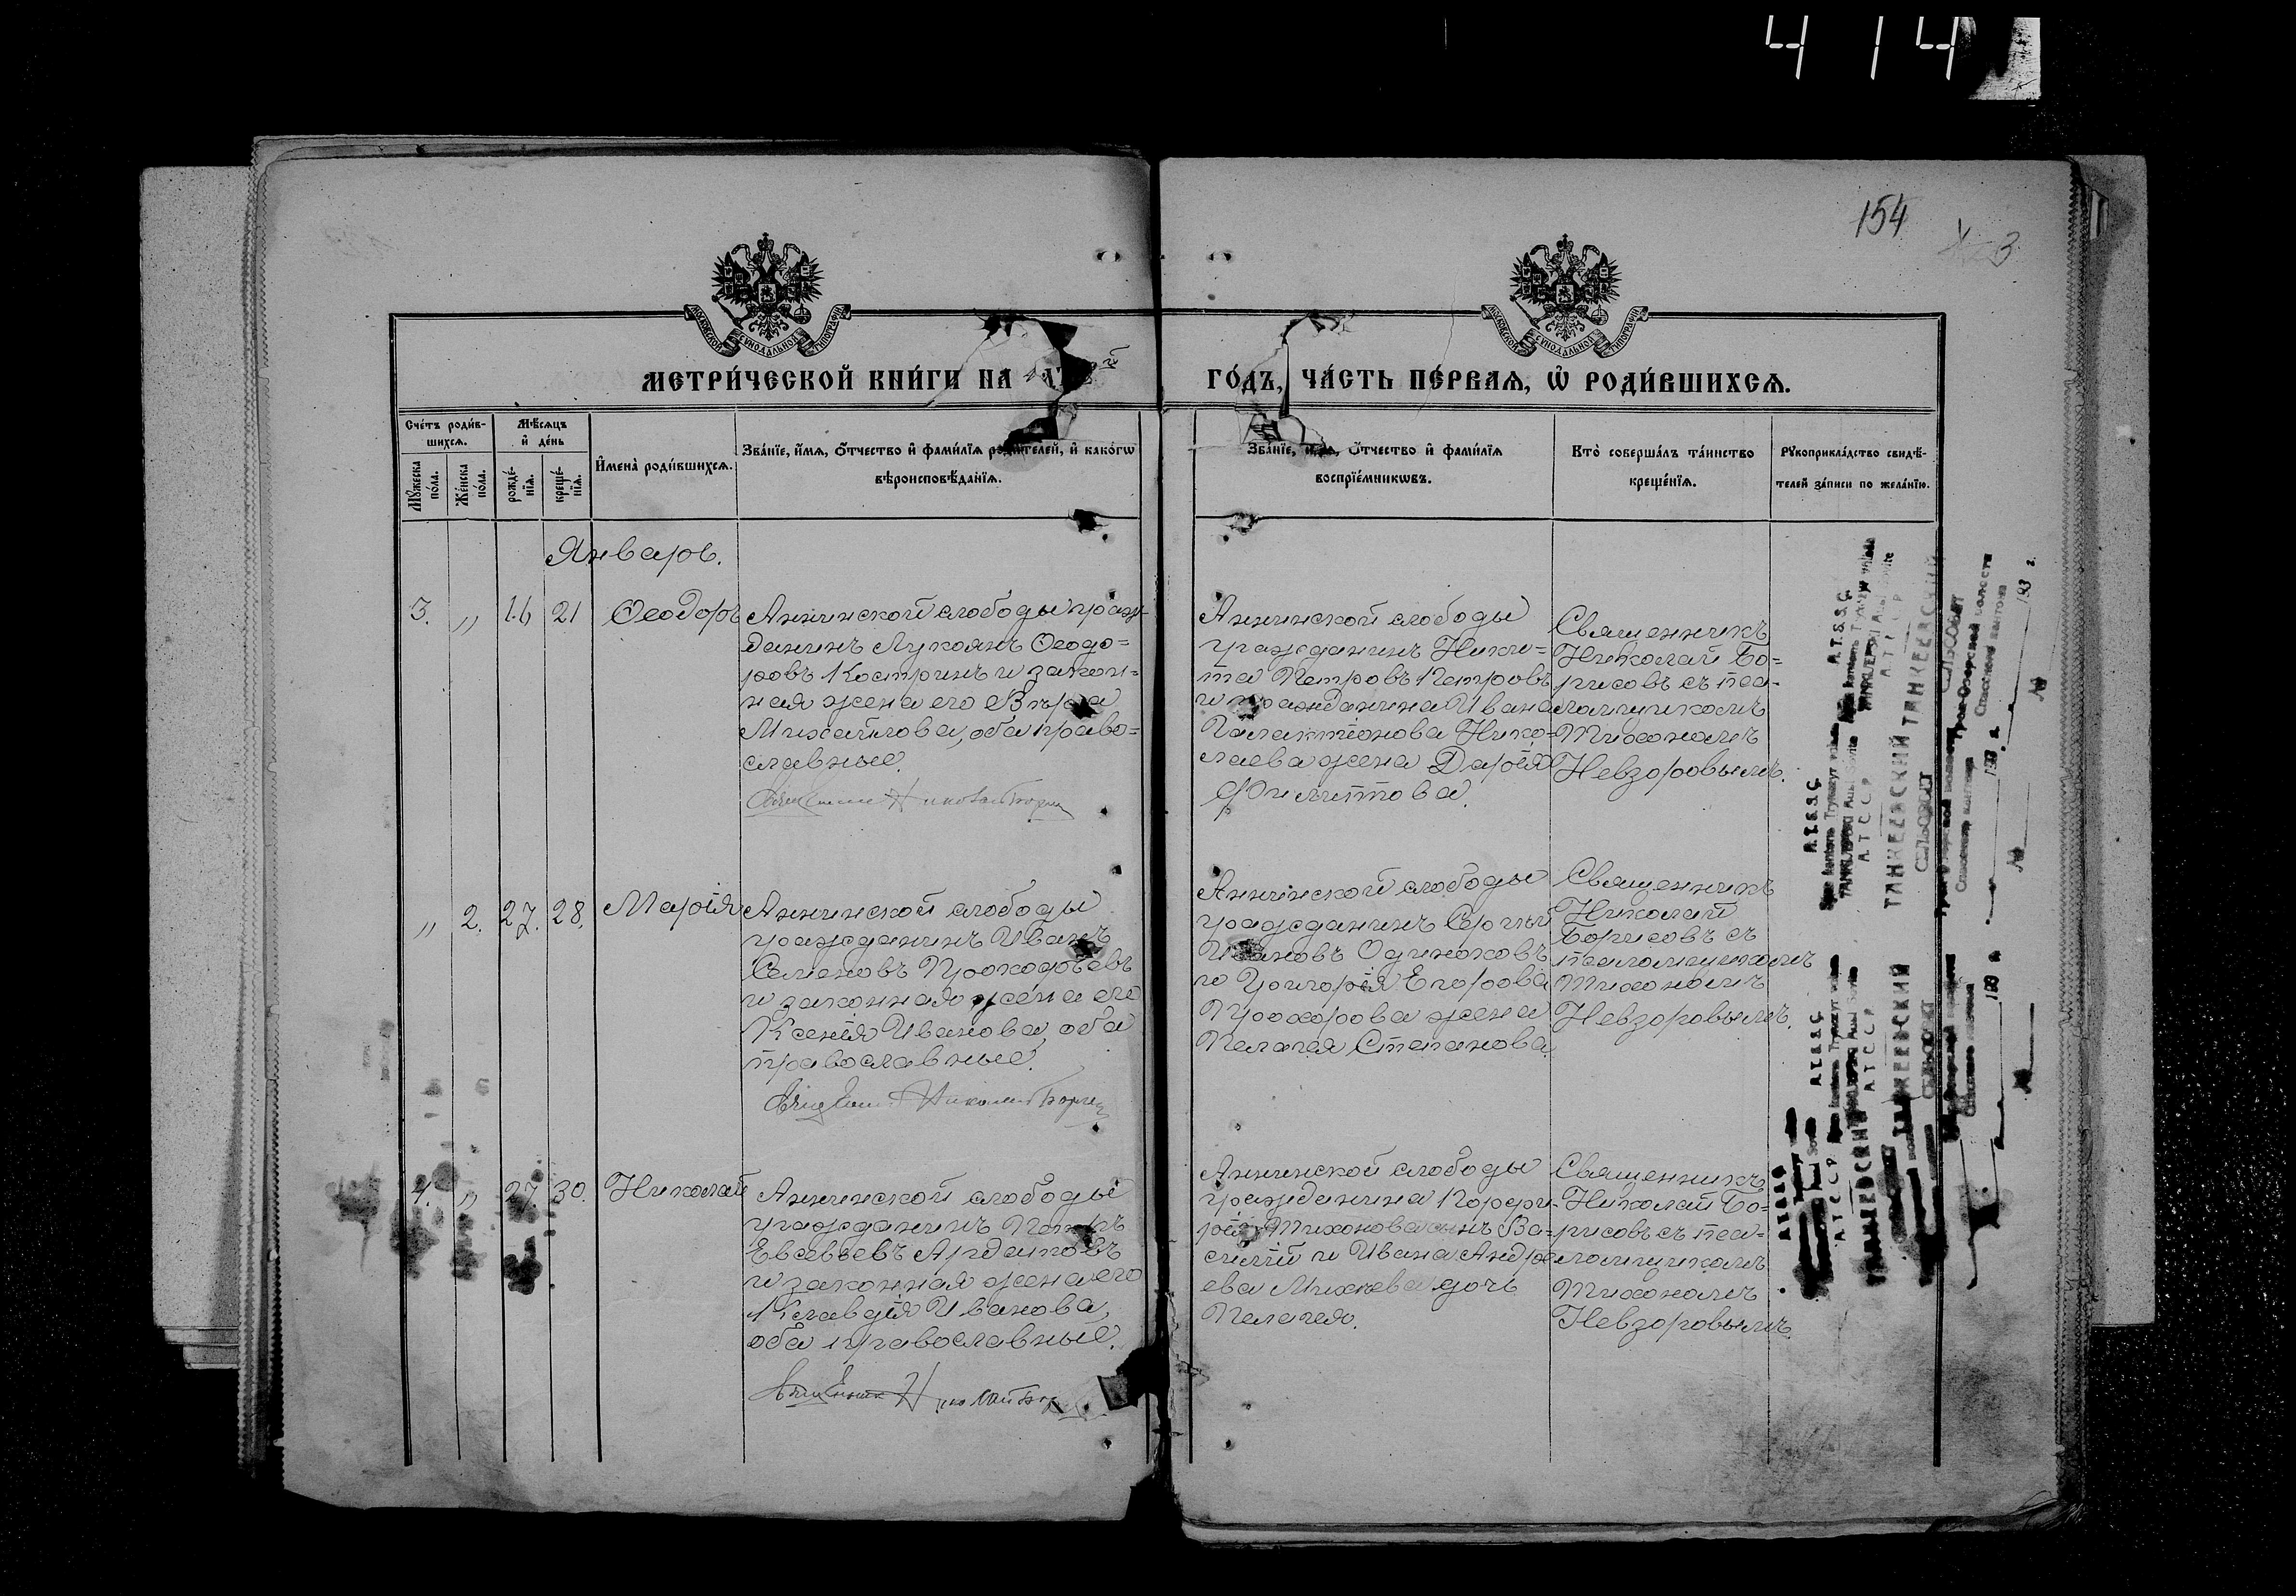 4 14
154
3
МОСКОВСКОЙ СѴНОДАЛЬНОЙ ТИПОГРАФІИ
МОСКОВСКОЙ СѴНОДАЛЬНОЙ ТИПОГРАФІИ
МЕТРИ́ЧЕСКОЙ КНИ́ГИ НА
ГО́ДЪ, ЧА́СТЬ ПЕ́РВАѦ, Ѡ҆ РОДИ́ВШИХСѦ.
Сче́тъ роди́в-
шихсѧ.
Мꙋ́жеска по́ла.
Же́нска по́ла.
Мѣ́сѧцъ
и҆ де́нь
рожде́-
нїѧ.
креще́-
нїѧ.
И҆мена̀ роди́вшихсѧ.
Зва́нїе, и҆́мѧ, ѻ҆́тчество и҆ фами́лїѧ роди́телей, и҆ како́гѡ
вѣроисповѣ́данїѧ.
Зва́нїе, и҆́мѧ, ѻ҆́тчество и҆ фами́лїѧ
воспрїе́мникѡвъ.
Кто̀ соверша́лъ та́инство
креще́нїѧ.
Рꙋкоприкла́дство свидѣ́-
телей за́писи по жела́нїю.
Январь.
3. „ 16 21 Ѳеодоръ
Аннинской слободы граж-
данинъ Лукоянъ Ѳеодо=
ровъ Костринъ и закон=
ная жена его Вѣра
Михайлова, оба право=
славные.
Священник Николай Борисов
Аннинской слободы
гражданинъ Ники=
та Петровъ Петровъ
и гражданина Ивана
Галактіонова Нико=
лаева жена Дарія
Филиппова.
Священникъ
Николай Бо=
рисовъ съ пса-
ломщикомъ
Тихономъ
Невзоровымъ.
„ 2. 27. 28. Марія
Аннинской слободы
гражданинъ Иванъ
Семеновъ Прокофьевъ
и законная жена его
Ксенія Иванова, оба
православные.
Священник Николай Борисов
Аннинской слободы
гражданинъ Сергѣй
Ивановъ Одиноковъ
и Григорія Егорова
Прохорова жена
Пелагея Степанова
Священникъ
Николай
Борисовъ съ
псаломщикомъ
Тихономъ
Невзоровымъ.
4. „ 27. 30. Николай
Аннинской слободы
гражданинъ Петръ
Евсевьевъ
и законная жена его
Клавдія Иванова,
оба православные.
Священник Николай Борисов
Аннинской слободы
гражданина Порфи-
рія Тихонова сынъ Ва=
силій и Ивана Андре
ева Михеева дочь
Пелагея.
Священникъ
Николай Бо=
рисовъ съ пса-
ломщикомъ
Тихономъ
Невзоровымъ.
A.T.S.S.Ç.
А Т С С Р
ТАНКЕЕВСКИЙ
СЕЛЬСОВЕТ
A.T.S.S.Ç.
А Т С С Р
ТАНКЕЕВСКИЙ
СЕЛЬСОВЕТ
193 г.
№
A.T.S.S.Ç.
А Т С С Р
ТАНКЕЕВСКИЙ
193 г.
№
А Т С С Р
ТАНКЕЕВСКИЙ
193 г.
№